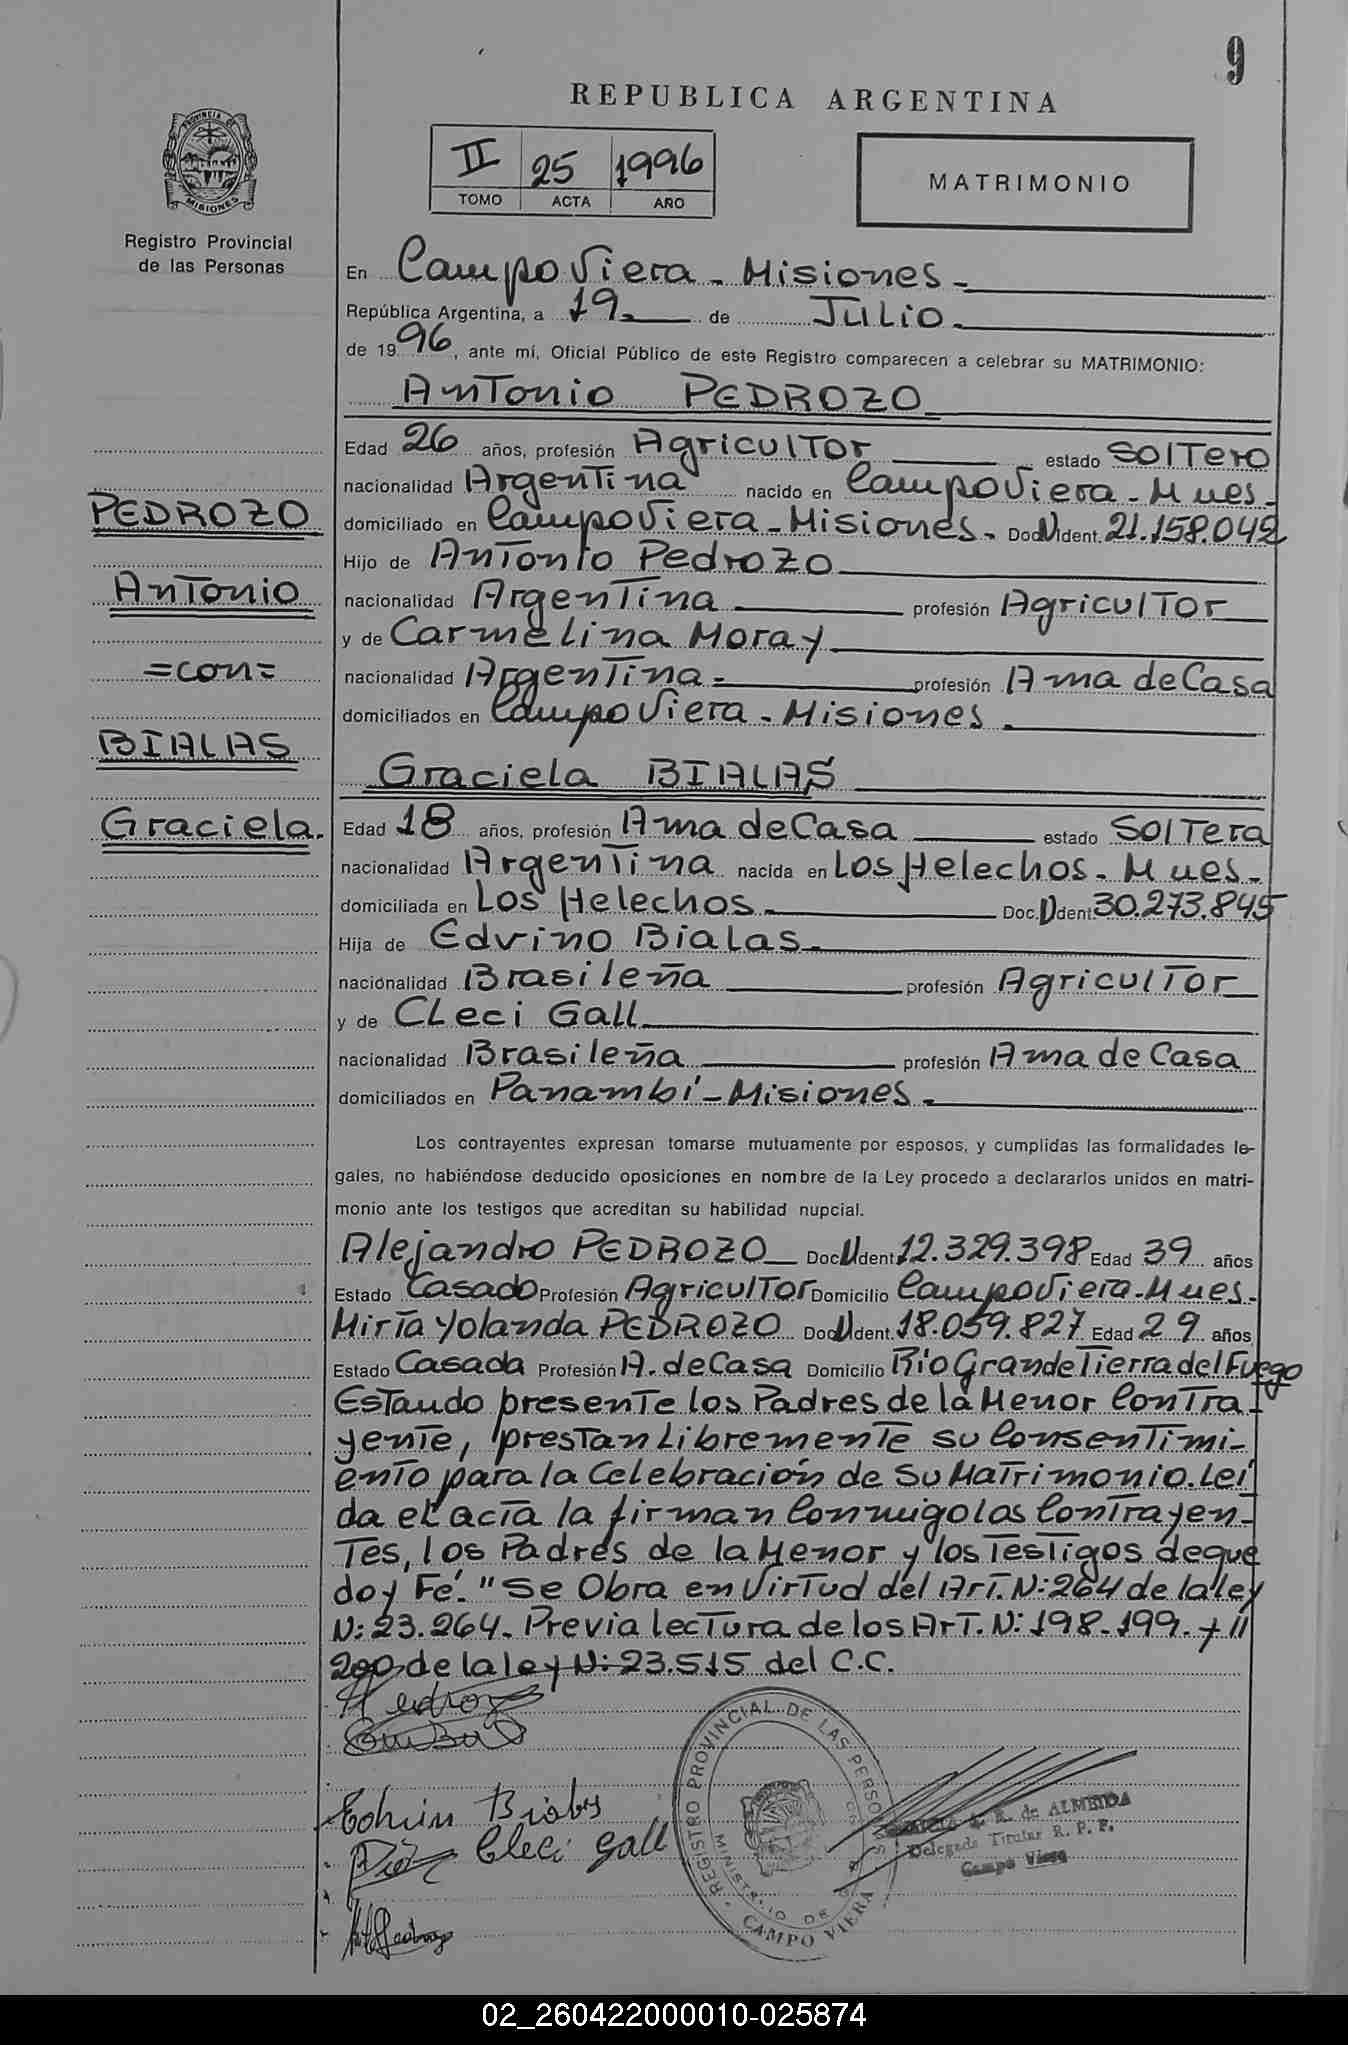 9
REPUBLICA ARGENTINA
II 25 1996
TOMO ACTA AÑO
MATRIMONIO
PROVINCIA DE MISIONES
Registro Provincial
de las Personas
En Campo Viera - Misiones -
República Argentina, a 19 - de Julio -
de 1996, ante mí, Oficial Público de este Registro comparecen a celebrar su MATRIMONIO:
Antonio PEDROZO
Edad 26 años, profesión Agricultor estado Soltero
nacionalidad Argentina nacido en Campo Viera - Mnes -
domiciliado en Campo Viera - Misiones - Doc. U Ident. 21.158.042
Hijo de Antonio Pedrozo
nacionalidad Argentina profesión Agricultor
y de Carmelina Moray
nacionalidad Argentina - profesión Ama de Casa
domiciliados en Campo Viera - Misiones -
Graciela BIALAS
Edad 18 años, profesión Ama de Casa estado Soltera
nacionalidad Argentina nacida en Los Helechos - Mnes -
domiciliada en Los Helechos - Doc. U Ident. 30.273.845
Hija de Edvino Bialas -
nacionalidad Brasileña profesión Agricultor
y de Cleci Gall
nacionalidad Brasileña profesión Ama de Casa
domiciliados en Panambí - Misiones -
PEDROZO
Antonio
=con=
BIALAS
Graciela.
Los contrayentes expresan tomarse mutuamente por esposos, y cumplidas las formalidades le-
gales, no habiéndose deducido oposiciones en nombre de la Ley procedo a declararlos unidos en matri-
monio ante los testigos que acreditan su habilidad nupcial.
Alejandro PEDROZO Doc. U Ident. 12.329.398 Edad 39 años
Estado Casado Profesión Agricultor Domicilio Campo Viera - Mnes -
Miría Yolanda PEDROZO Doc. U Ident. 18.059.827 Edad 29 años
Estado Casada Profesión A. de Casa Domicilio Río Grande Tierra del Fuego
Estando presente los Padres de la Menor Contra-
yente, prestan Libremente su Consentimi-
ento para la Celebración de su Matrimonio. Leí
da el acta la firman Conmigo los Contrayen-
tes, los Padres de la Menor y los Testigos de que
doy Fé. "Se Obra en Virtud del Art. N: 264 de la ley
N: 23.264. Previa lectura de los Art. N: 198-199- y //
200 de la ley N: 23.515 del C.C.
Cleci Gall
REGISTRO PROVINCIAL DE LAS PERSONAS
MINISTERIO DE
CAMPO VIERA
R. de ALMEIDA
Delegada Titular R. P. P.
Campo Viera
02_260422000010-025874